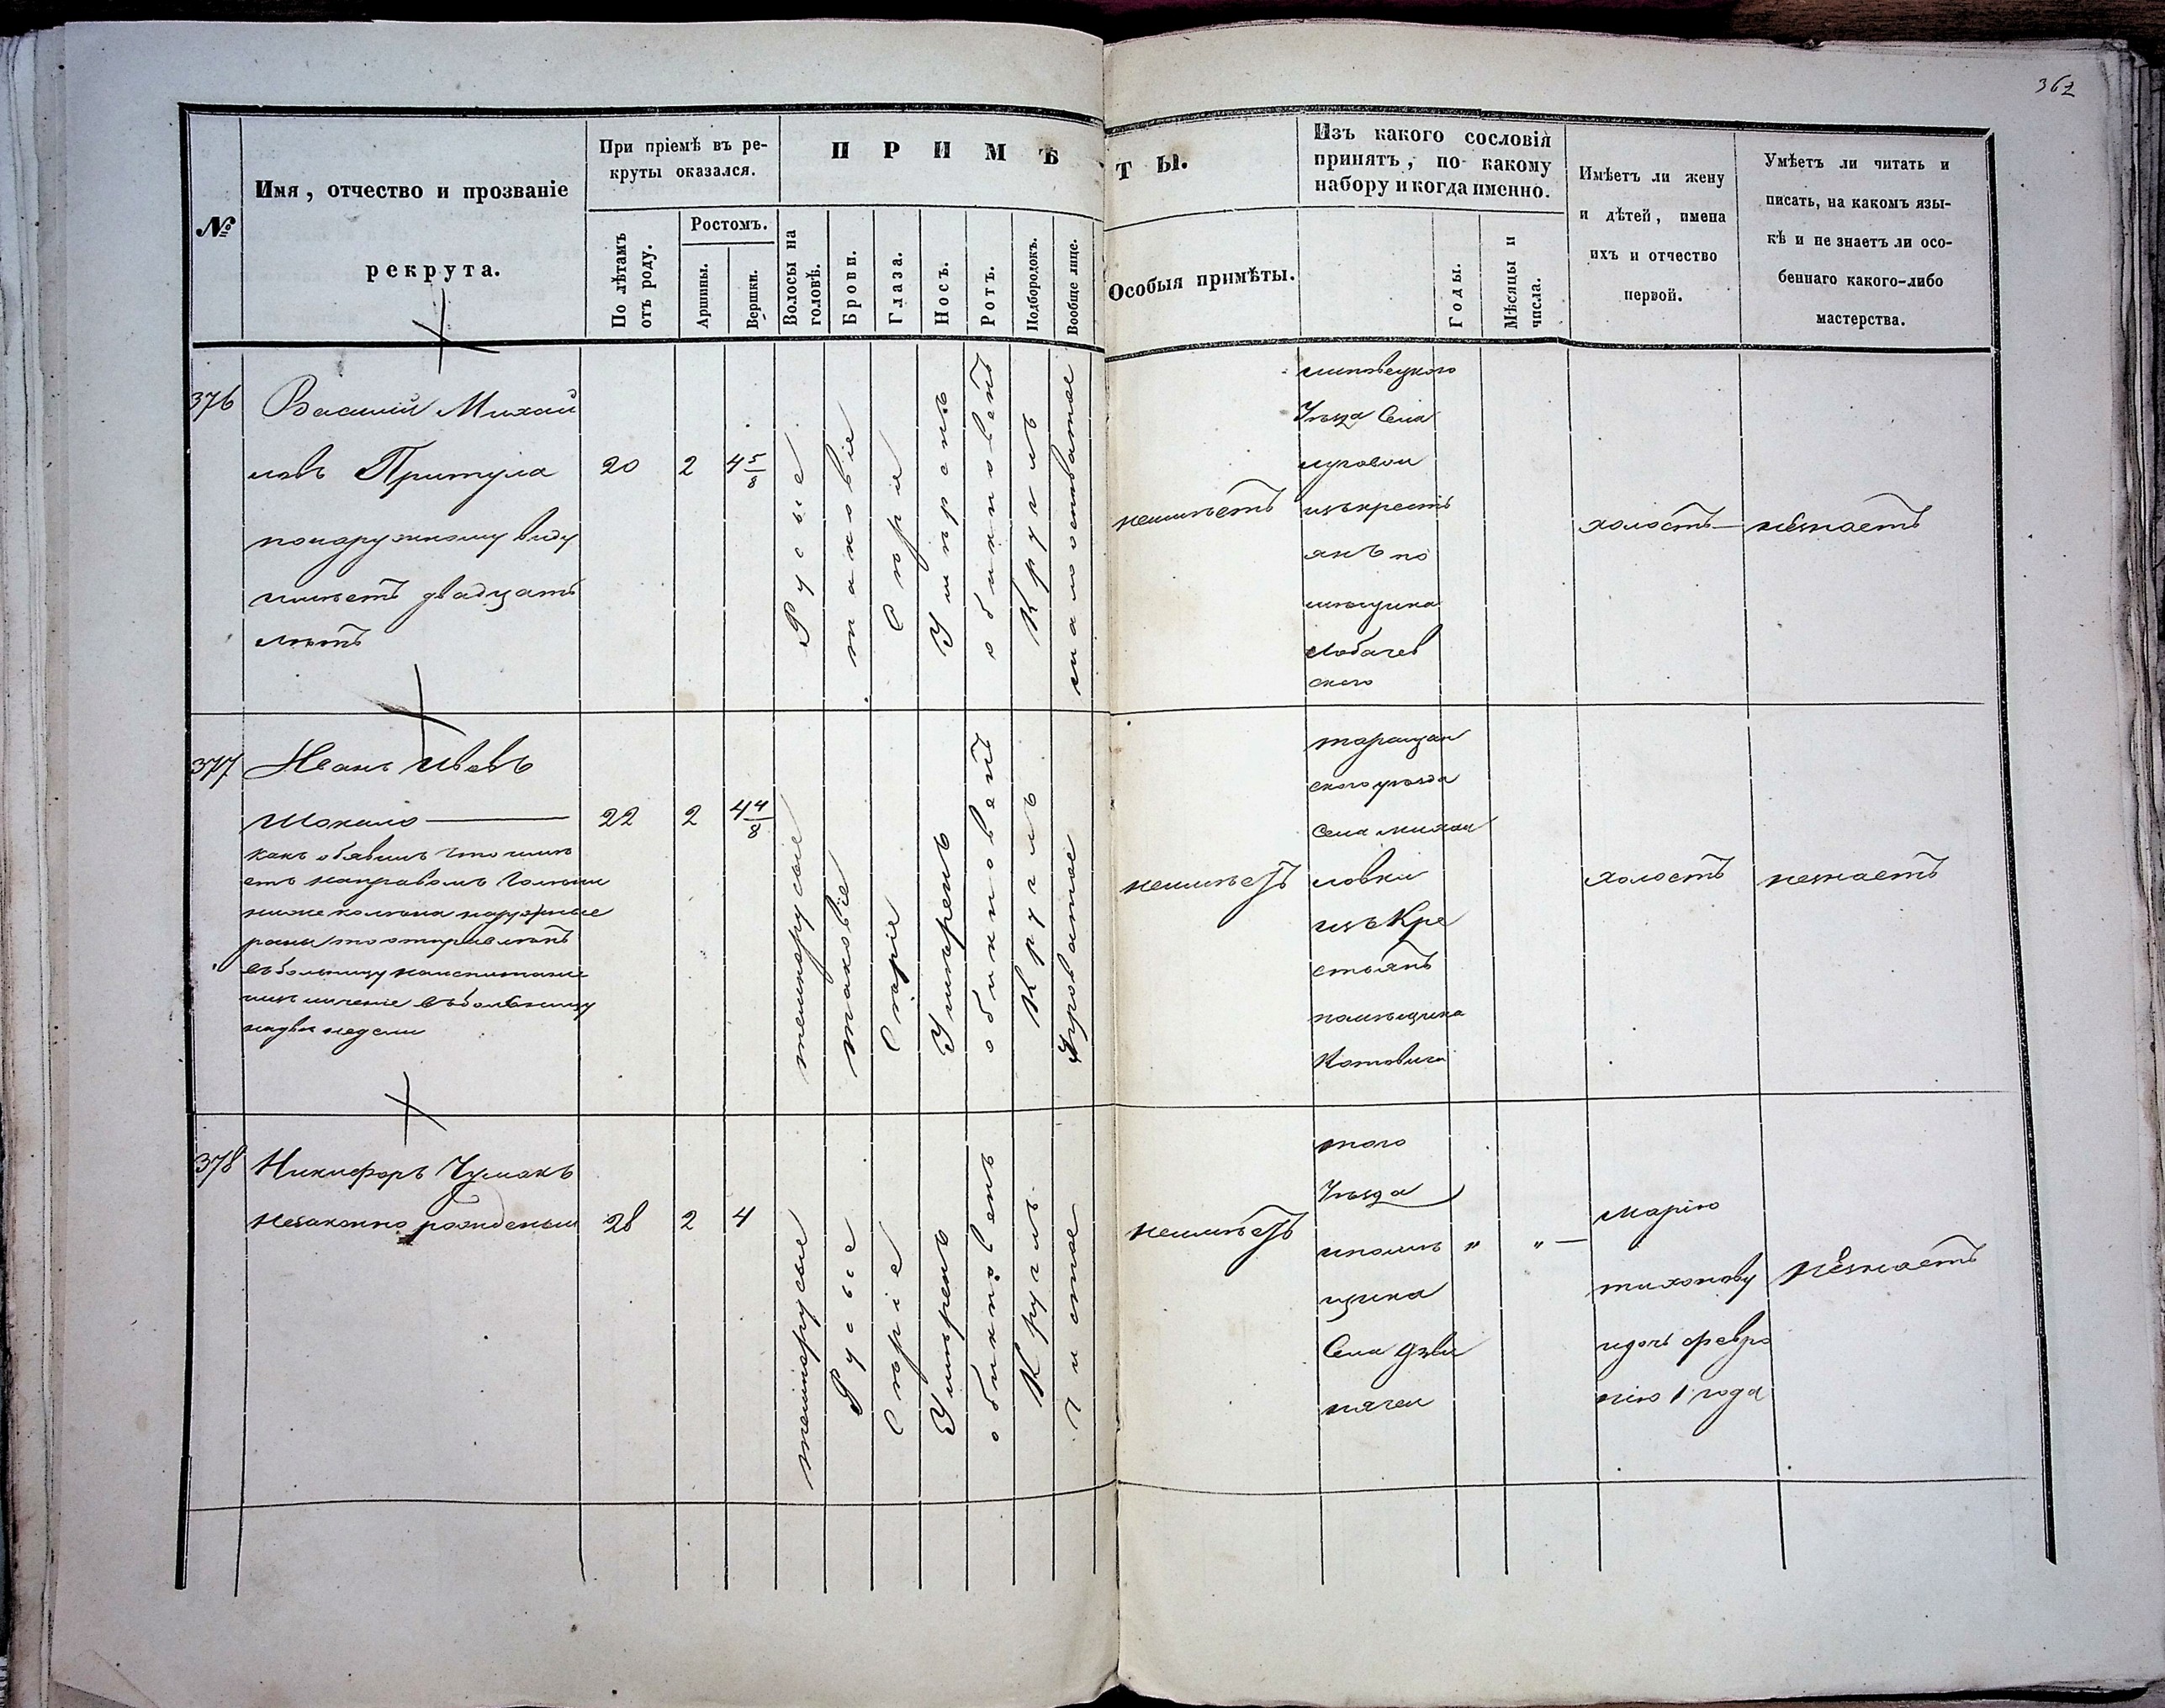 362
№
Имя, отчество и прозваніе
рекрута.
При пріемѣ въ ре-
круты оказался.
По лѣтамъ
отъ роду.
Ростомъ.
Аршины.
Вершки.
ПРИМѢ
ТЫ.
Волосы на
головѣ.
Брови.
Глаза.
Носъ.
Ротъ.
Подбородокъ.
Вообще лице.
Особыя примѣты.
Изъ какого сословія
принятъ, по какому
набору и когда именно.
Годы.
Мѣсяцы и
числа.
Имѣетъ ли жену
и дѣтей, имена
ихъ и отчество
первой.
Умѣетъ ли читать и
писать, на какомъ язы-
кѣ и не знаетъ ли осо-
беннаго какого-либо
мастерства.
376
Василій Михай
ловъ Притула
понаружному виду
имѣетъ двадцать
лѣтъ
20
2
4 5/8
Русые
таковіе
Сѣріе
Умѣренъ
обикновенъ
Круглъ
малоосповатое
неимѣетъ
липовецкого
Уѣзда Села
изъкрестъ
янъ по
мѣщика
Лобачев
ского
холостъ
незнаетъ
377
Иванъ Ивовъ
Шокало
какъ обявилъ что имѣ
етъ направомъ Голѣни
ниже колѣна наружные
раны то отправленъ
въ больницу наиспитание
въ больницу
надвѣ недели
22
2
4 4/8
темнорусые
таковіе
Сѣріе
Умѣренъ
обикновенъ
Круглъ
Дзюроватое
неимѣетъ
таращан
ского уѣзда
Села михай
ловки
изъ Кре
стьянъ
помѣщика
Котовича
холостъ
незнаетъ
378
Никифоръ Чумакъ
незаконно рожденъ
28
2
4
темнорусые
Русые
Сѣріе
Умѣренъ
обикновенъ
Круглъ
Чистое
неимѣетъ
того
Уѣзда
ипомѣ
щика
Села Дзве
нячеи
"
" —
Марію
тихонову
идочь февро
нію 1 года
незнаетъ